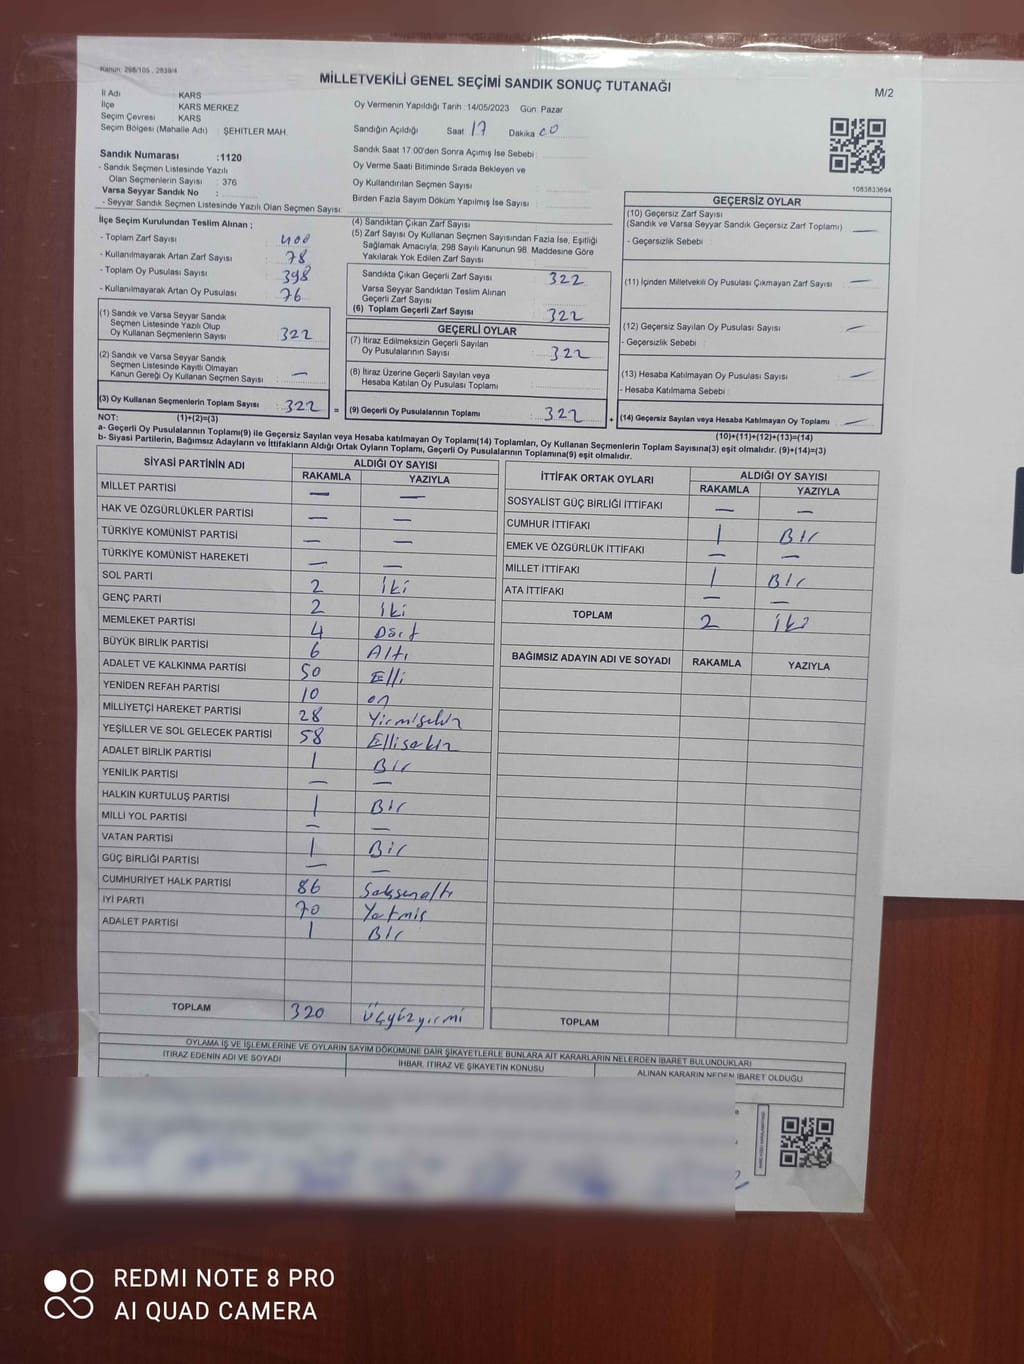 Kanun: 298/105 , 2839/4
MİLLETVEKİLİ GENEL SEÇİMİ SANDIK SONUÇ TUTANAĞI
M/2
İl Adı : KARS
İlçe : KARS MERKEZ
Seçim Çevresi : KARS
Seçim Bölgesi (Mahalle Adı) : ŞEHİTLER MAH.
Oy Vermenin Yapıldığı Tarih :14/05/2023 Gün: Pazar
Sandığın Açıldığı Saat 17 Dakika 00
Sandık Saat 17:00'den Sonra Açımış İse Sebebi :
Oy Verme Saati Bitiminde Sırada Bekleyen ve
Oy Kullandırılan Seçmen Sayısı :
Birden Fazla Sayım Döküm Yapılmış İse Sayısı :
Sandık Numarası :1120
- Sandık Seçmen Listesinde Yazılı
Olan Seçmenlerin Sayısı : 376
Varsa Seyyar Sandık No :
- Seyyar Sandık Seçmen Listesinde Yazılı Olan Seçmen Sayısı:
1083833694
İlçe Seçim Kurulundan Teslim Alınan ;
- Toplam Zarf Sayısı : 400
- Kullanılmayarak Artan Zarf Sayısı : 78
- Toplam Oy Pusulası Sayısı : 398
- Kullanılmayarak Artan Oy Pusulası : 76
(1) Sandık ve Varsa Seyyar Sandık
Seçmen Listesinde Yazılı Olup
Oy Kullanan Seçmenlerin Sayısı : 322
(2) Sandık ve Varsa Seyyar Sandık
Seçmen Listesinde Kayıtlı Olmayan
Kanun Gereği Oy Kullanan Seçmen Sayısı : —
(3) Oy Kullanan Seçmenlerin Toplam Sayısı : 322
(4) Sandıktan Çıkan Zarf Sayısı :
(5) Zarf Sayısı Oy Kullanan Seçmen Sayısından Fazla İse, Eşitliği
Sağlamak Amacıyla, 298 Sayılı Kanunun 98. Maddesine Göre
Yakılarak Yok Edilen Zarf Sayısı :
Sandıkta Çıkan Geçerli Zarf Sayısı : 322
Varsa Seyyar Sandıktan Teslim Alınan
Geçerli Zarf Sayısı :
(6) Toplam Geçerli Zarf Sayısı : 322
GEÇERLİ OYLAR
(7) İtiraz Edilmeksizin Geçerli Sayılan
Oy Pusulalarının Sayısı : 322
(8) İtiraz Üzerine Geçerli Sayılan veya
Hesaba Katılan Oy Pusulası Toplamı :
= (9) Geçerli Oy Pusulalarının Toplamı : 322
GEÇERSİZ OYLAR
(10) Geçersiz Zarf Sayısı
(Sandık ve Varsa Seyyar Sandık Geçersiz Zarf Toplamı) : —
- Geçersizlik Sebebi :
(11) İçinden Milletvekili Oy Pusulası Çıkmayan Zarf Sayısı : —
(12) Geçersiz Sayılan Oy Pusulası Sayısı : —
- Geçersizlik Sebebi :
(13) Hesaba Katılmayan Oy Pusulası Sayısı : —
- Hesaba Katılmama Sebebi :
+ (14) Geçersiz Sayılan veya Hesaba Katılmayan Oy Toplamı : —
NOT: (1)+(2)=(3)
(10)+(11)+(12)+(13)=(14)
a- Geçerli Oy Pusulalarının Toplamı(9) ile Geçersiz Sayılan veya Hesaba katılmayan Oy Toplamı(14) Toplamları, Oy Kullanan Seçmenlerin Toplam Sayısına(3) eşit olmalıdır. (9)+(14)=(3)
b- Siyasi Partilerin, Bağımsız Adayların ve İttifakların Aldığı Ortak Oyların Toplamı, Geçerli Oy Pusulalarının Toplamına(9) eşit olmalıdır.
SİYASİ PARTİNİN ADI ALDIĞI OY SAYISI
RAKAMLA YAZIYLA
MİLLET PARTİSİ — —
HAK VE ÖZGÜRLÜKLER PARTİSİ — —
TÜRKİYE KOMÜNİST PARTİSİ — —
TÜRKİYE KOMÜNİST HAREKETİ — —
SOL PARTİ 2 İki
GENÇ PARTİ 2 İki
MEMLEKET PARTİSİ 4 Dört
BÜYÜK BİRLİK PARTİSİ 6 Altı
ADALET VE KALKINMA PARTİSİ 50 Elli
YENİDEN REFAH PARTİSİ 10 on
MİLLİYETÇİ HAREKET PARTİSİ 28 Yirmisekiz
YEŞİLLER VE SOL GELECEK PARTİSİ 58 Ellisekiz
ADALET BİRLİK PARTİSİ 1 Bir
YENİLİK PARTİSİ — —
HALKIN KURTULUŞ PARTİSİ 1 Bir
MİLLİ YOL PARTİSİ — —
VATAN PARTİSİ 1 Bir
GÜÇ BİRLİĞİ PARTİSİ — —
CUMHURİYET HALK PARTİSİ 86 Seksenaltı
İYİ PARTİ 70 Yetmiş
ADALET PARTİSİ 1 Bir
TOPLAM 320 Üçyüzyirmi
İTTİFAK ORTAK OYLARI ALDIĞI OY SAYISI
RAKAMLA YAZIYLA
SOSYALİST GÜÇ BİRLİĞİ İTTİFAKI — —
CUMHUR İTTİFAKI 1 Bir
EMEK VE ÖZGÜRLÜK İTTİFAKI — —
MİLLET İTTİFAKI 1 Bir
ATA İTTİFAKI — —
TOPLAM 2 İki
BAĞIMSIZ ADAYIN ADI VE SOYADI RAKAMLA YAZIYLA
TOPLAM
OYLAMA İŞ VE İŞLEMLERİNE VE OYLARIN SAYIM DÖKÜMÜNE DAİR ŞİKAYETLERLE BUNLARA AİT KARARLARIN NELERDEN İBARET BULUNDUKLARI
İTİRAZ EDENİN ADI VE SOYADI İHBAR, İTİRAZ VE ŞİKAYETİN KONUSU ALINAN KARARIN NEDEN İBARET OLDUĞU
REDMI NOTE 8 PRO
AI QUAD CAMERA